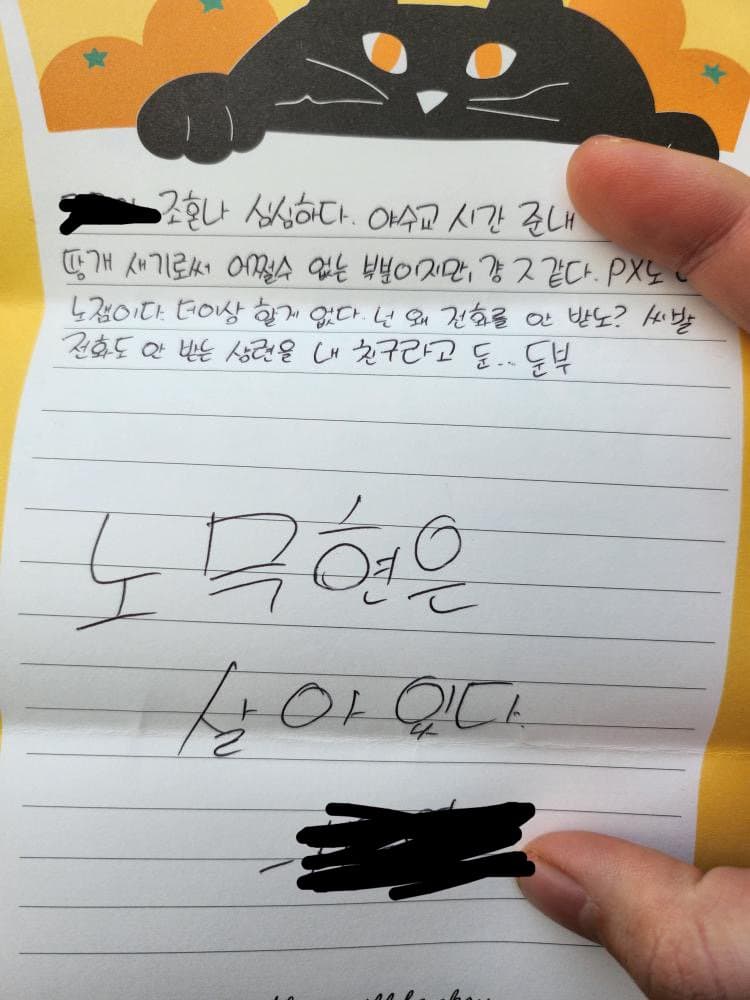 조혼나 심심하다. 야수교 시간 준내
땅개 새기로써 어쩔수 없는 부분이지만, 걍 ㅈ같다. PX도
노잼이다. 더이상 할게 없다. 넌 왜 전화를 안 받노? 씨발
전화도 안 받는 상련을 내 친구라고 둔.. 둔부
노무현은
살아있다.